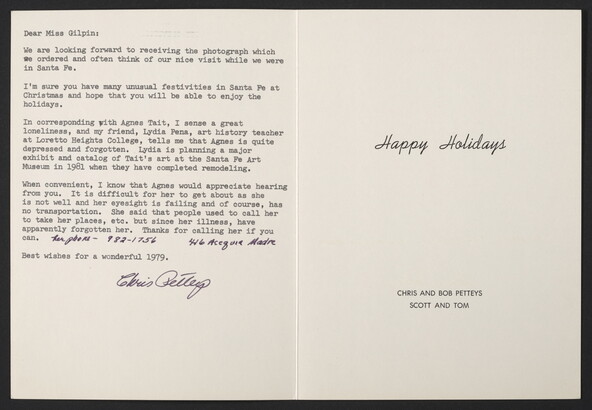 Dear Miss Gilpin:
We are looking forward to receiving the photograph which
we ordered and often think of our nice visit while we were
in Santa Fe.
I'm sure you have many unusual festivities in Santa Fe at
Christmas and hope that you will be able to enjoy the
holidays.
In corresponding with Agnes Tait, I sense a great
loneliness, and my friend, Lydia Pena, art history teacher
at Loretto Heights College, tells me that Agnes is quite
depressed and forgotten. Lydia is planning a major
exhibit and catalog of Tait's art at the Santa Fe Art
Museum in 1981 when they have completed remodeling.
When convenient, I know that Agnes would appreciate hearing
from you. It is difficult for her to get about as she
is not well and her eyesight is failing and of course, has
no transportation. She said that people used to call her
to take her places, etc. but since her illness, have
apparently forgotten her. Thanks for calling her if you
can. her phone - 982-1756 416 Acequia Madre
Best wishes for a wonderful 1979.
Chris Petteys
Happy Holidays
CHRIS AND BOB PETTEYS
SCOTT AND TOM